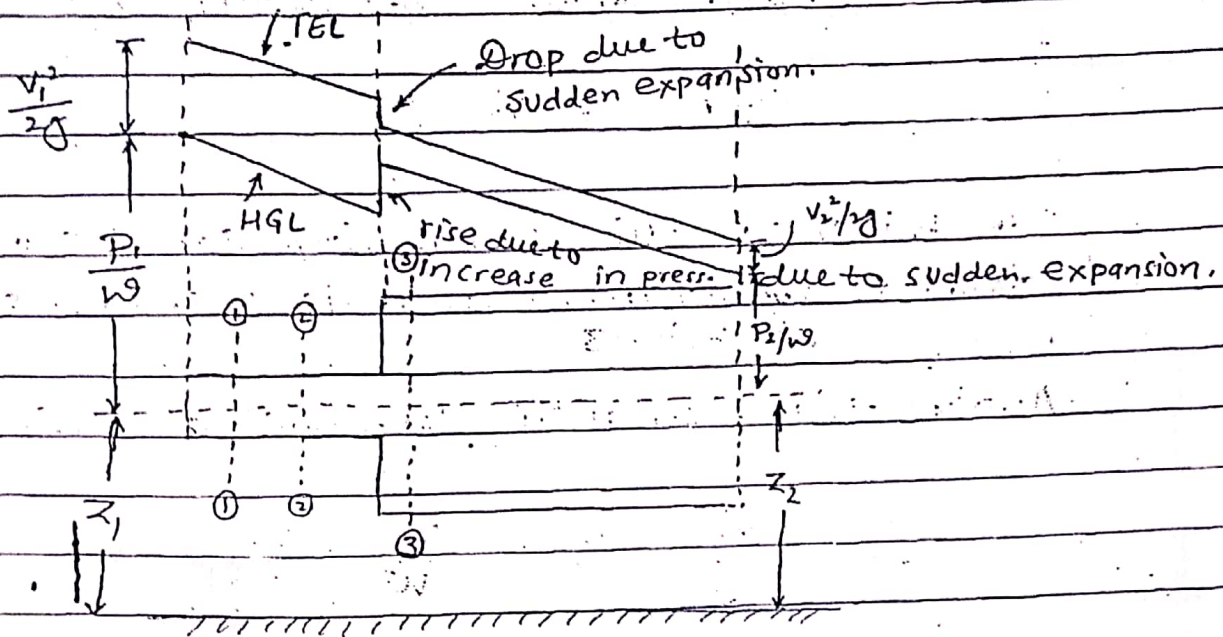 TEL
Drop due to
sudden expansion.
V₁²
2g
HGL
rise due to
increase in press.
due to sudden expansion.
V₂²/2g
P₁
w
P₂/w
① ② ③
① ② ③
Z₁
Z₂